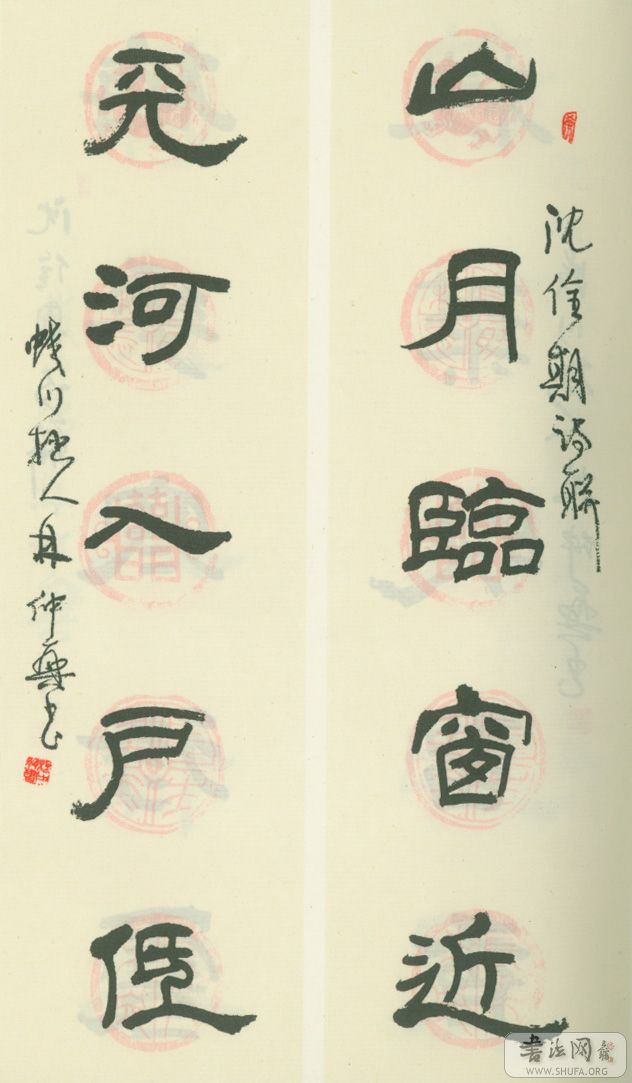 沈佺期詩聯
山月臨窗近
天河入戶低
蛟川人林仲興書
書法网
WWW.SHUFA.ORG